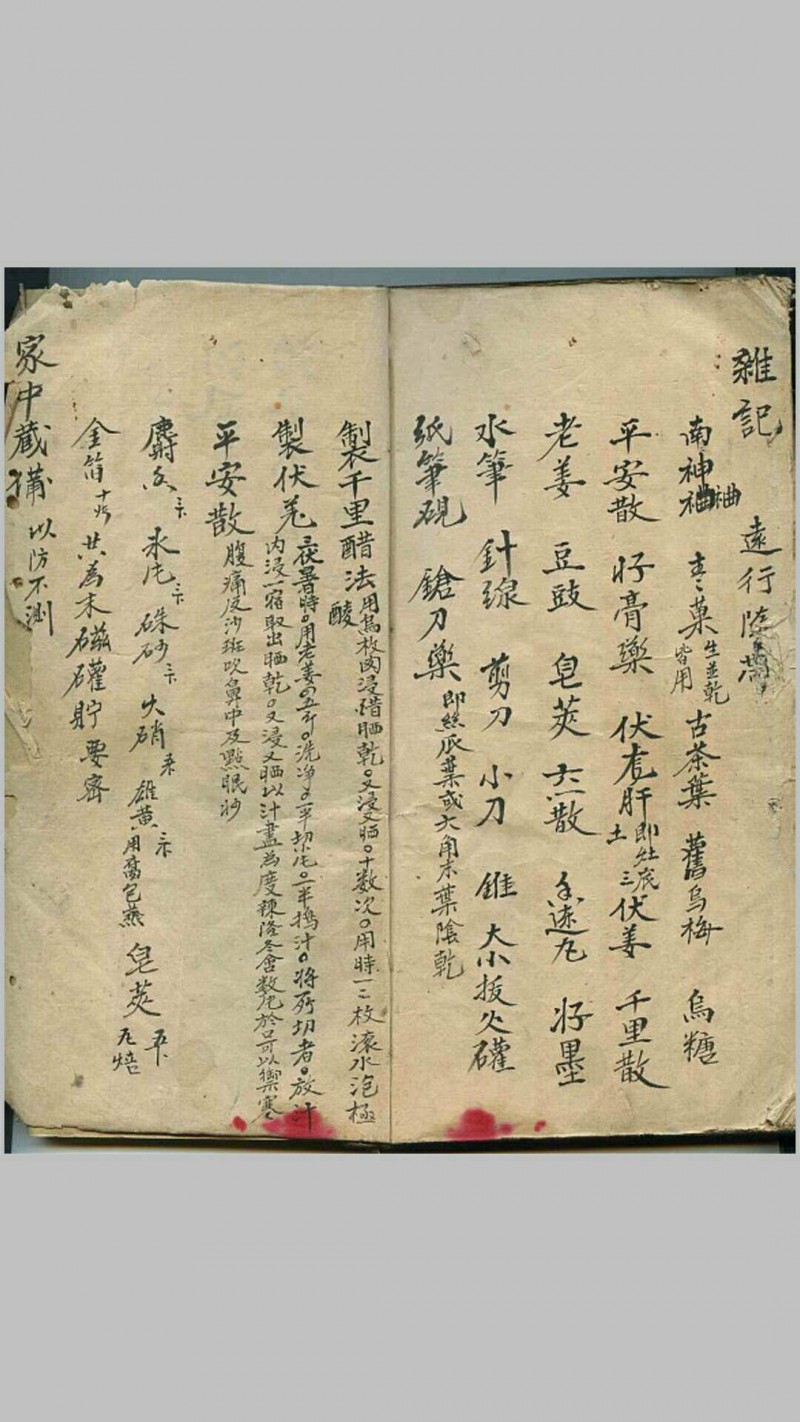 雜記
遠行隨
南神 薬生並乾皆用 古茶葉 舊烏梅 烏糖
平安散 好膏藥 伏肝土即灶底 三伏姜 千里散
老姜 豆豉 皂莢 六一散 速丸 好墨
水筆 針線 剪刀 小刀 錐 大小拔火礶
紙筆硯 鎗刀藥即絲瓜葉或大角木葉陰乾
製千里醋法用烏枚肉浸惜晒乾。又浸又晒。十数次。用時一二枚滚水泡極酸
製伏羗三夜暑時。用老姜四五斤。洗净。一半切片。一半搗汁。将所切者。放汁
内浸一宿取出晒乾。又浸又晒以汁盡為度隆冬含数片於口可以禦寒
平安散 腹痛反沙斑吹鼻中及點眼妙
麝 氷片 硃砂 火硝 雄黄 用腐包蒸 皂莢 焙
金箔十 共為末磁礶貯要密
家中蔵備 以防不測